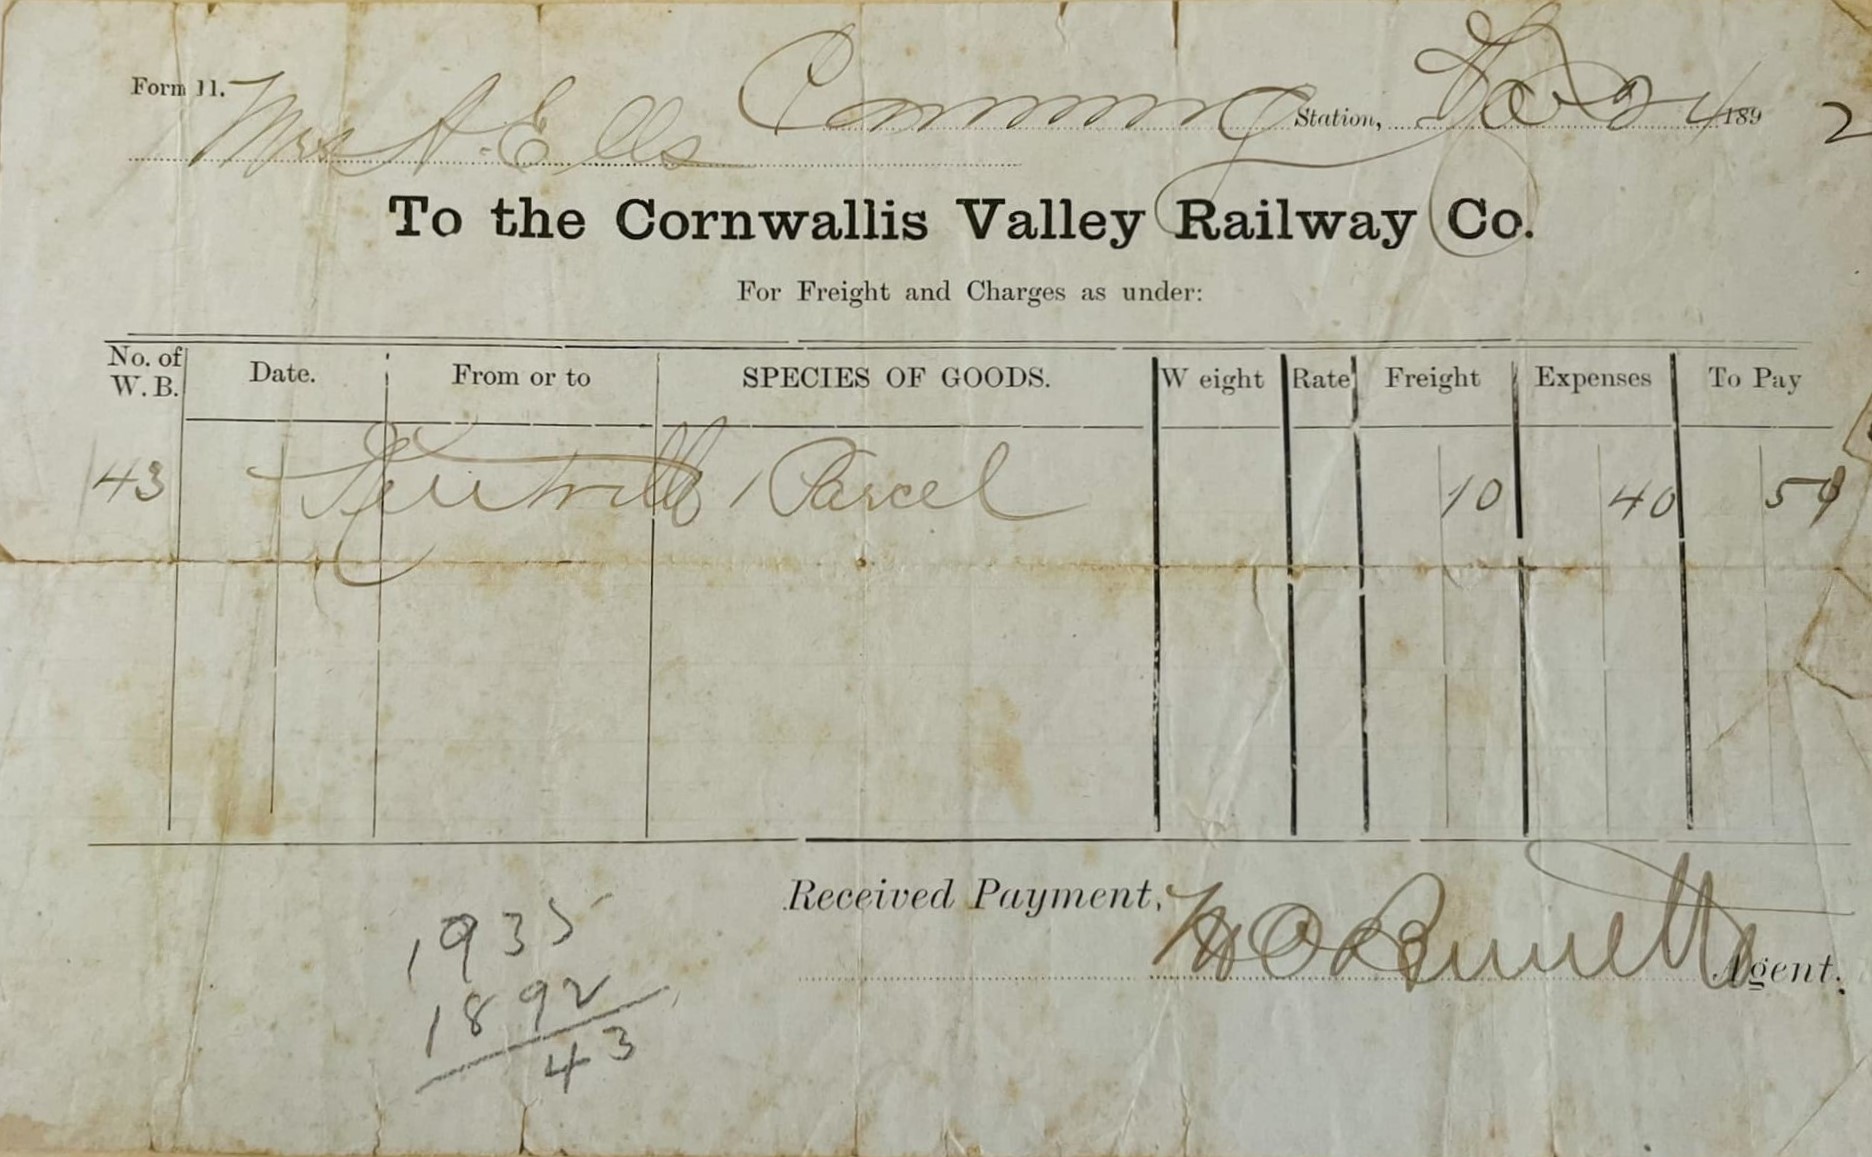 Form 11. Canning Station, 24 189 2
Mrs A. Ells
To the Cornwallis Valley Railway Co.
For Freight and Charges as under:
No. of W. B. Date. From or to SPECIES OF GOODS. Weight Rate Freight Expenses To Pay
43 Kentville 1 Parcel 10 40 50
Received Payment,
Bennett Agent.
1935
1892
43